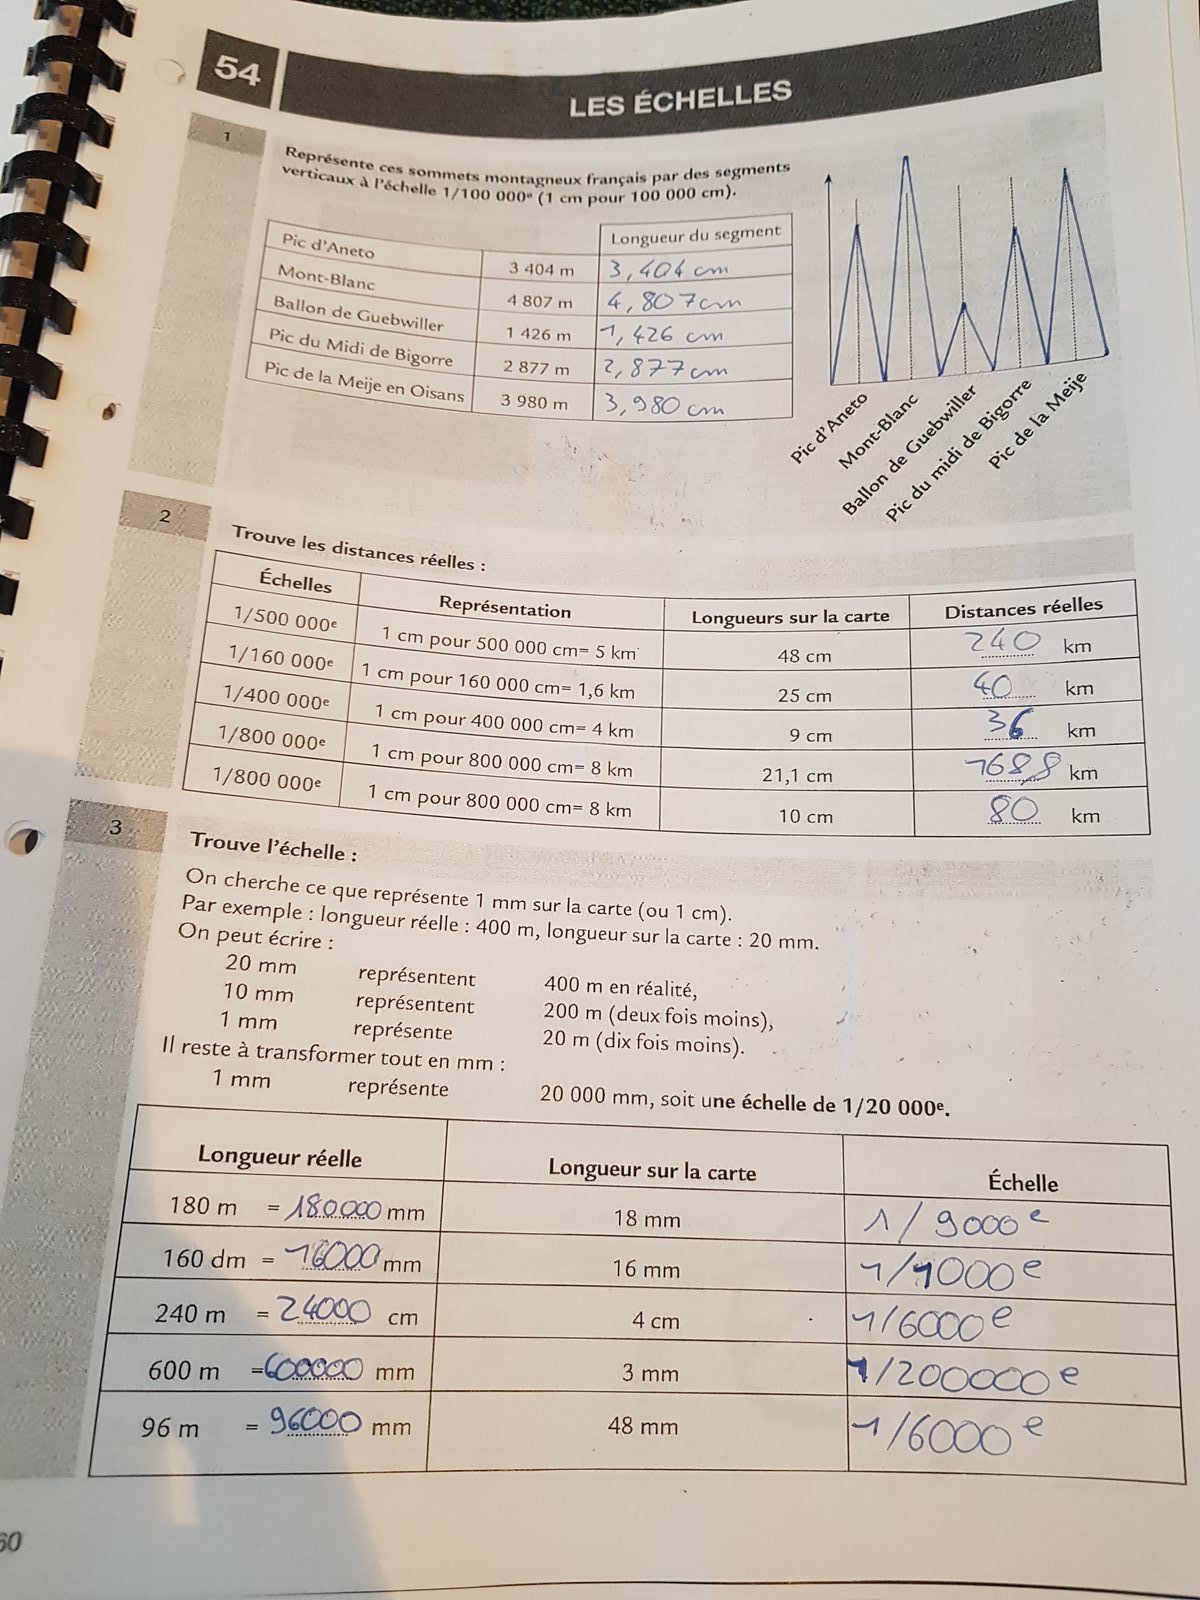 54
LES ÉCHELLES
1
Représente ces sommets montagneux français par des segments
verticaux à l'échelle 1/100 000e (1 cm pour 100 000 cm).
Longueur du segment
Pic d'Aneto 3 404 m 3,404 cm
Mont-Blanc 4 807 m 4,807cm
Ballon de Guebwiller 1 426 m 1,426 cm
Pic du Midi de Bigorre 2 877 m 2,877cm
Pic de la Meije en Oisans 3 980 m 3,980 cm
Pic d'Aneto
Mont-Blanc
Ballon de Guebwiller
Pic du midi de Bigorre
Pic de la Meije
2
Trouve les distances réelles :
Échelles Représentation Longueurs sur la carte Distances réelles
1/500 000e 1 cm pour 500 000 cm= 5 km 48 cm 240 km
1/160 000e 1 cm pour 160 000 cm= 1,6 km 25 cm 40 km
1/400 000e 1 cm pour 400 000 cm= 4 km 9 cm 36 km
1/800 000e 1 cm pour 800 000 cm= 8 km 21,1 cm 168,8 km
1/800 000e 1 cm pour 800 000 cm= 8 km 10 cm 80 km
3
Trouve l'échelle :
On cherche ce que représente 1 mm sur la carte (ou 1 cm).
Par exemple : longueur réelle : 400 m, longueur sur la carte : 20 mm.
On peut écrire :
20 mm représentent 400 m en réalité,
10 mm représentent 200 m (deux fois moins),
1 mm représente 20 m (dix fois moins).
Il reste à transformer tout en mm :
1 mm représente 20 000 mm, soit une échelle de 1/20 000e.
Longueur réelle Longueur sur la carte Échelle
180 m = 180000 mm 18 mm 1/9000e
160 dm = 16000 mm 16 mm 1/1000e
240 m = 24000 cm 4 cm 1/6000e
600 m =600000 mm 3 mm 1/200000e
96 m = 96000 mm 48 mm 1/6000e
60